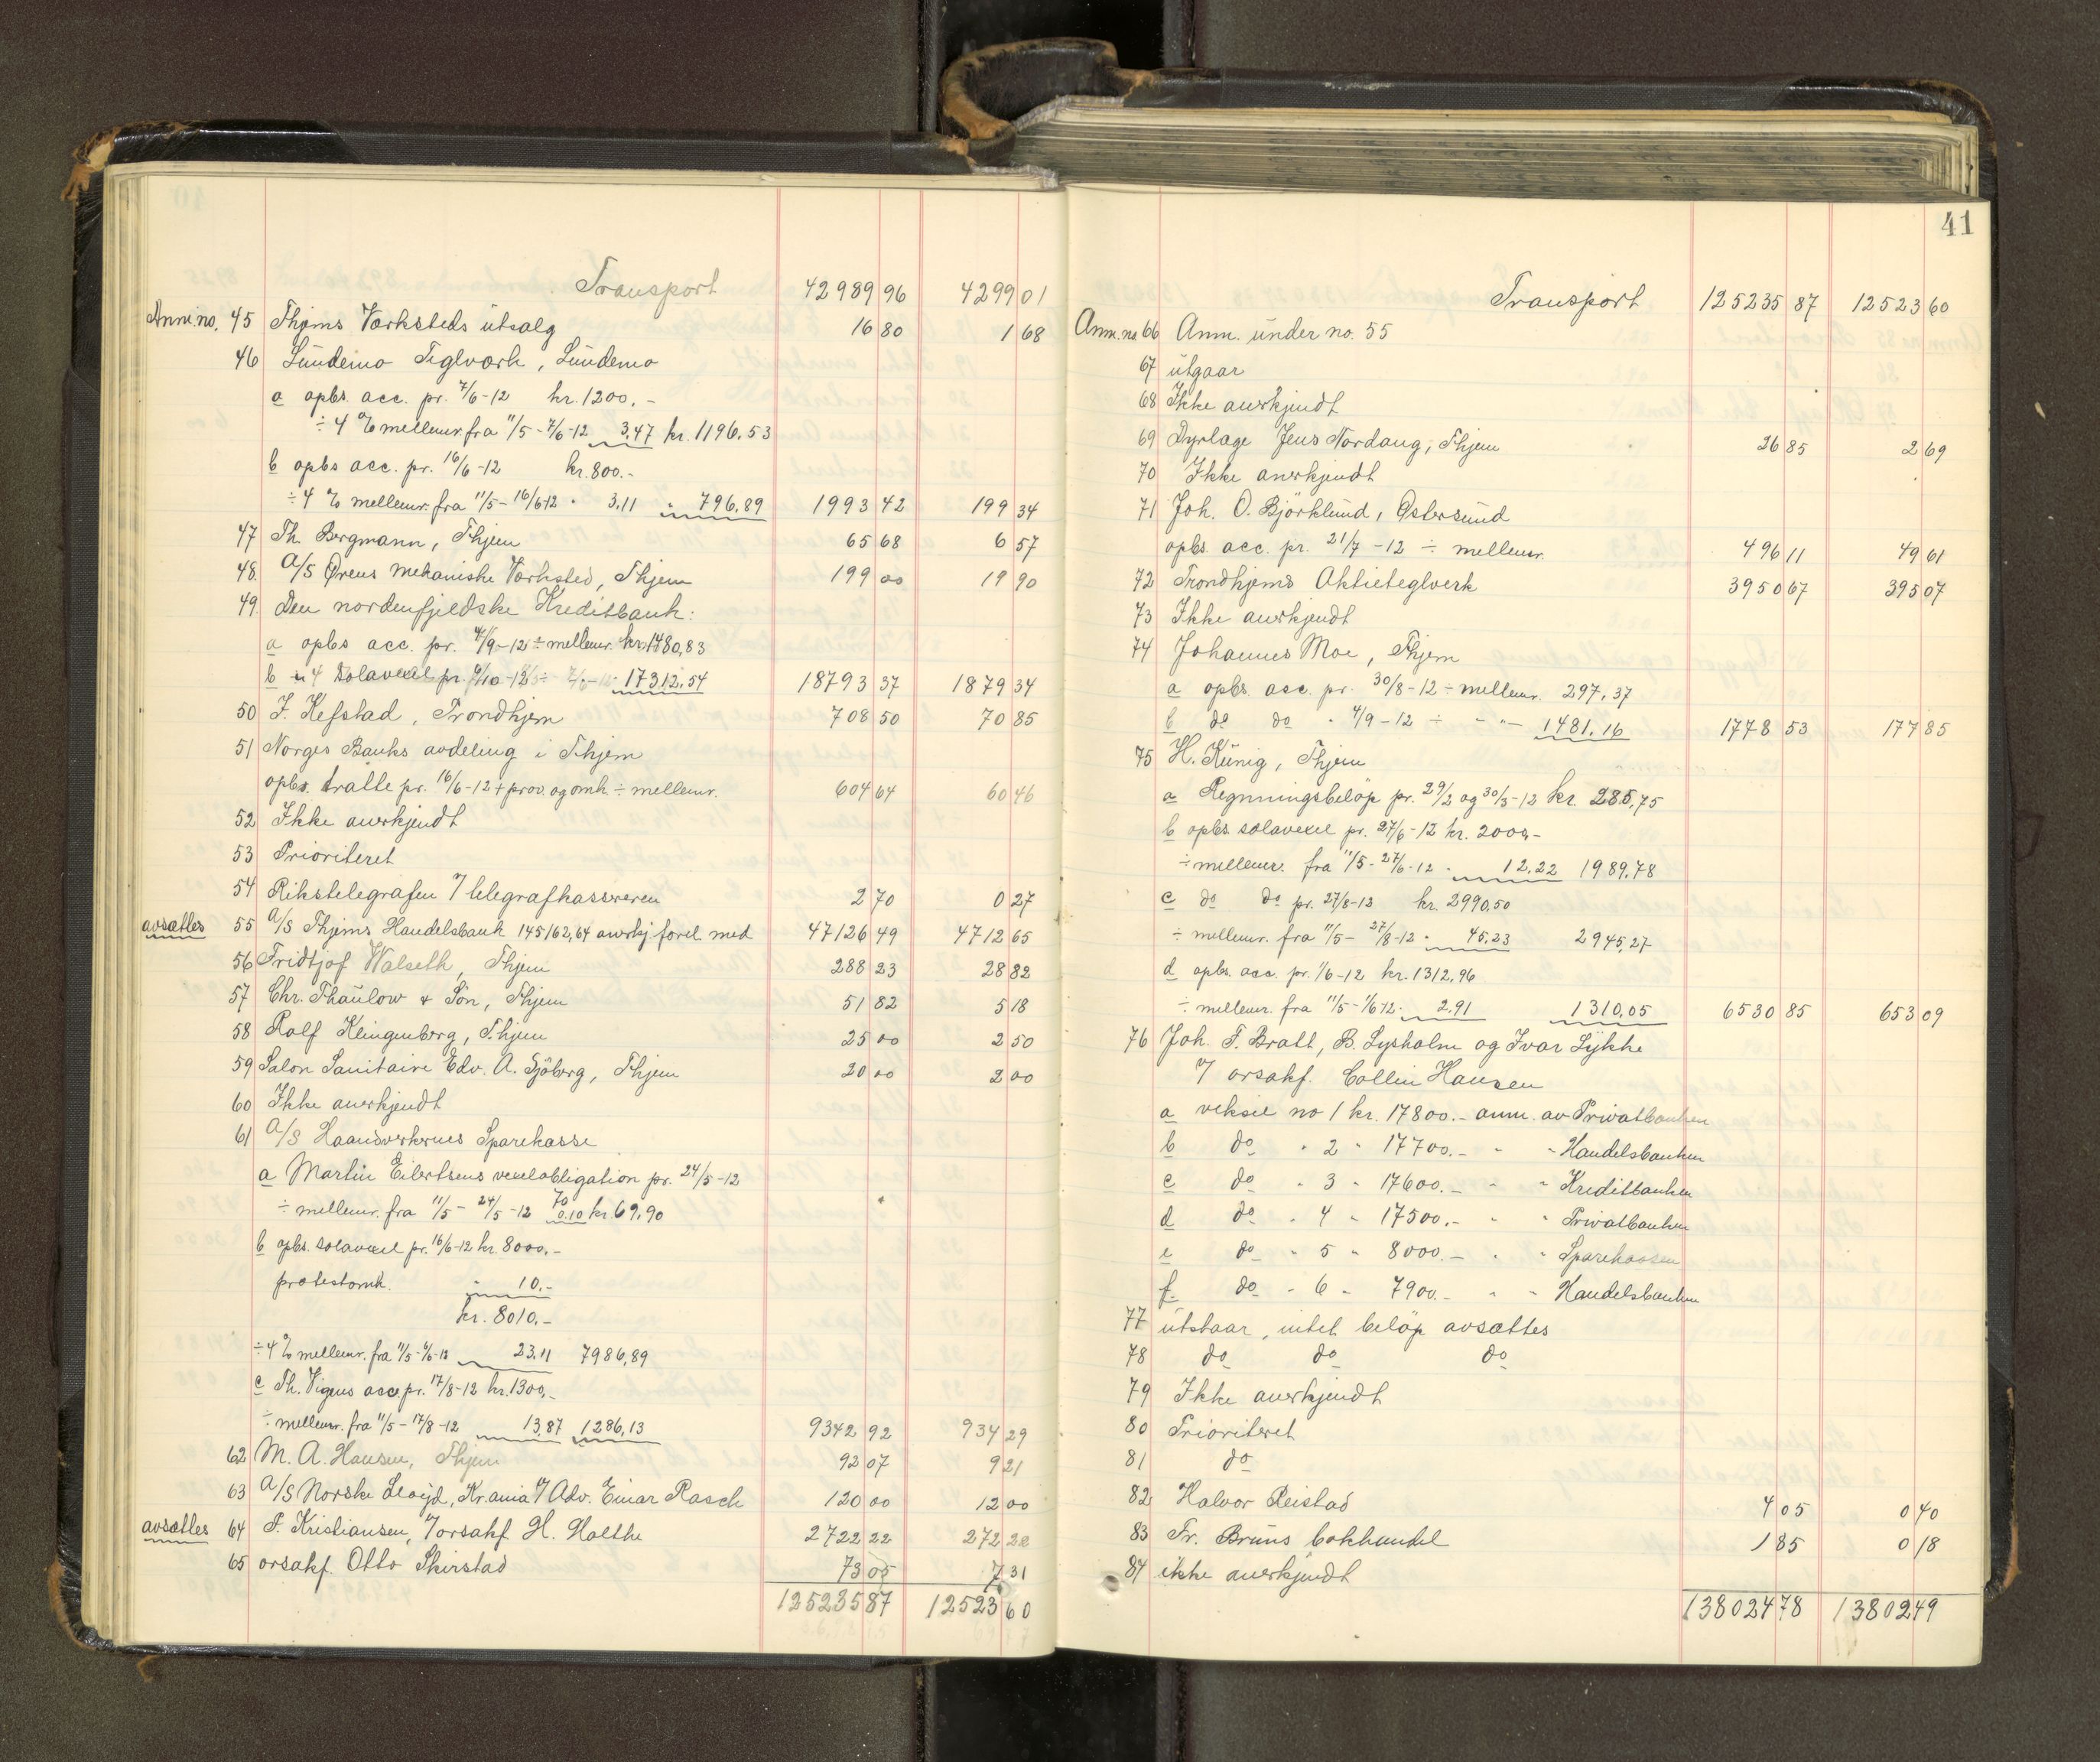 Transport 42989 96 4299 01
Anm.no. 45 Thjems Værksteds utsalg 16 80 1 68
46 Lundemo Teglværk, Lundemo
a opbs. acc. pr. 7/6-12 kr. 1200.-
÷ 4 % mellemr. fra 11/5 - 7/6-12 3.47 kr. 1196.53
b opbs acc. pr. 16/6-12 kr. 800.-
÷ 4 % mellemr. fra 11/5 - 16/6-12 " 3.11 " 796.89 1993 42 199 34
47 Th. Bergmann, Thjem 65 68 6 57
48. A/S Ørens mekaniske Værksted, Thjem 199 00 19 90
49 Den nordenfjeldske Kreditbank:
a opbs acc. pr. 4/9-12 ÷ mellemr. kr. 1480,83
b 4 Solavexel pr. 17312.54 18793 37 1879 34
50 J. Kefstad, Trondhjem 708 50 70 85
51 Norges Banks avdeling i Thjem
opbs. tratte pr. 16/6-12 + prov. og omk. ÷ mellemr. 604 64 60 46
52 Ikke anerkjendt
53 Prioriteret
54 Rikstelegrafen v/ telegrafkassereren 2 70 0 27
avsættes 55 A/S Thjems Handelsbank 145/62,64 anerkj. forel. med 47126 49 4712 65
56 Fridtjof Walseth, Thjem 288 23 28 82
57 Chr. Thaulow & Søn, Thjem 51 82 5 18
58 Rolf Klingenberg, Thjem 25 00 2 50
59 Salon Sanitaire Edv. A. Sjøberg, Thjem 20 00 2 00
60 Ikke anerkjendt
61 A/S Haandverkernes Sparekasse
a Martin Eilertsens vexelobligation pr. 24/5-12
÷ mellemr. fra 11/5 - 24/5-12 70 0.10 kr. 69,90
b opbs. solavexel pr. 16/6-12 kr. 8000.-
protestomk. " 10.-
kr. 8010.-
÷ 4 % mellemr. fra 11/5 - 23.11 7986,89
c Th. Vigens acc. pr. 17/8-12 kr. 1300.-
÷ mellemr. fra 11/5 - 17/8-12 13,87 1286,13 9342 92 934 29
62 M. A. Hansen, Thjem 92 07 9 21
63 A/S Norske Lloyd, Kr.ania v/ Adv. Einar Rasch 120 00 12 00
avsættes 64 P. Kristiansen, v/ orsakf. H. Holthe 2722 22 272 22
65 orsakf. Otto Skirstad 73 05 7 31
125235 87 12523 60
41
Transport 125235 87 12523 60
Anm.no 66 Anm. under no. 55
67 utgaar
68 Ikke anerkjendt
69 Dyrlæge Jens Nordaug, Thjem 26 85 2 69
70 Ikke anerkjendt
71 Joh. O. Björklund, Østersund
opbs. acc. pr. 21/7-12 ÷ mellemr. 496 11 49 61
72 Trondhjems Aktieteglverk 3950 67 395 07
73 Ikke anerkjendt
74 Johannes Moe, Thjem
a opbs. acc. pr. 30/8-12 ÷ mellemr. 297.37
b do do " 4/9-12 ÷ - " - 1481.16 1778 53 177 85
75 H. Künig, Thjem
a Regnningsbeløp pr. 29/2 og 30/3-12 kr. 285,75
b opbs. solavexel pr. 27/6-12 kr. 2000.-
÷ mellemr. fra 11/5 - 27/6-12 " 12.22 1989.78
c do do pr. 27/8-12 kr. 2990,50
÷ mellemr. fra 11/5 - 27/8-12 " 45,23 2945,27
d opbs. acc. pr. 1/6-12 kr. 1312,96
÷ mellemr. fra 11/5 - 1/6-12 " 2.91 1310,05 6530 85 653 09
76 Joh. F. Bratt, B. Lysholm og Ivar Lykke
v/ orsakf. Collin Hansen
a veksel no 1 kr. 17800.- anm. av Privatbanken
b do " 2 " 17700.- " " Handelsbanken
c do " 3 " 17600.- " " Kreditbanken
d do " 4 " 17500.- " " Privatbanken
e do " 5 " 8000.- " " Sparekassen
f do " 6 " 7900.- " " Handelsbanken
77 utstaar, intet beløp avsættes
78 do do do
79 Ikke anerkjendt
80 Prioriteret
81 do
82 Halvor Reistad 4 05 0 40
83 Fr. Bruns bokhandel 1 85 0 18
84 ikke anerkjendt
138024 78 13802 49